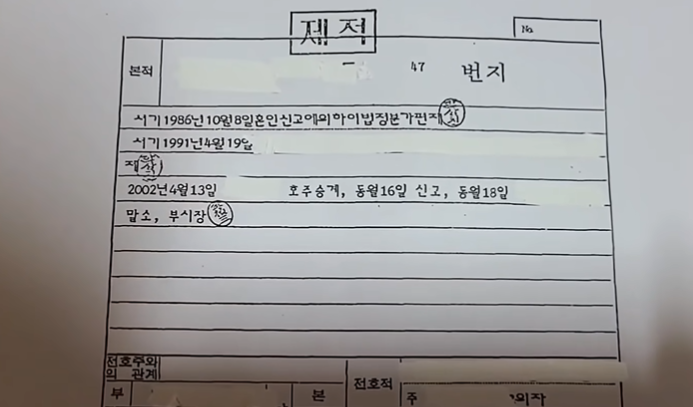 제적
No
본적
47 번지
서기1986년10월8일혼인신고에의하여법정분가편제
서기1991년4월19일
재
2002년4월13일 호주승계, 동월16일 신고, 동월18일
말소, 부시장
전호주와
의 관계
전호적
부
본
주
의자